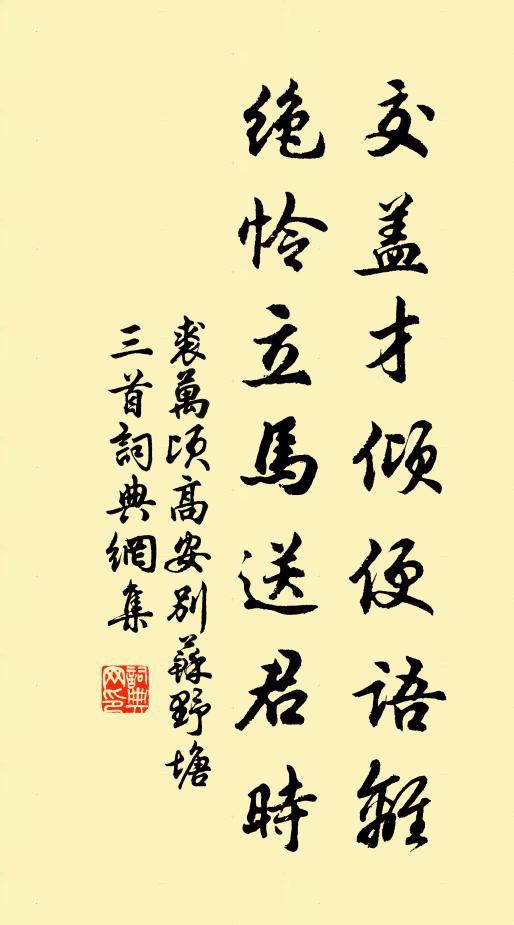 交盖才傾便語離
絶憐立馬送君時
裘萬頃高安別蘇野塘
三首詞典網集
詞典
网印